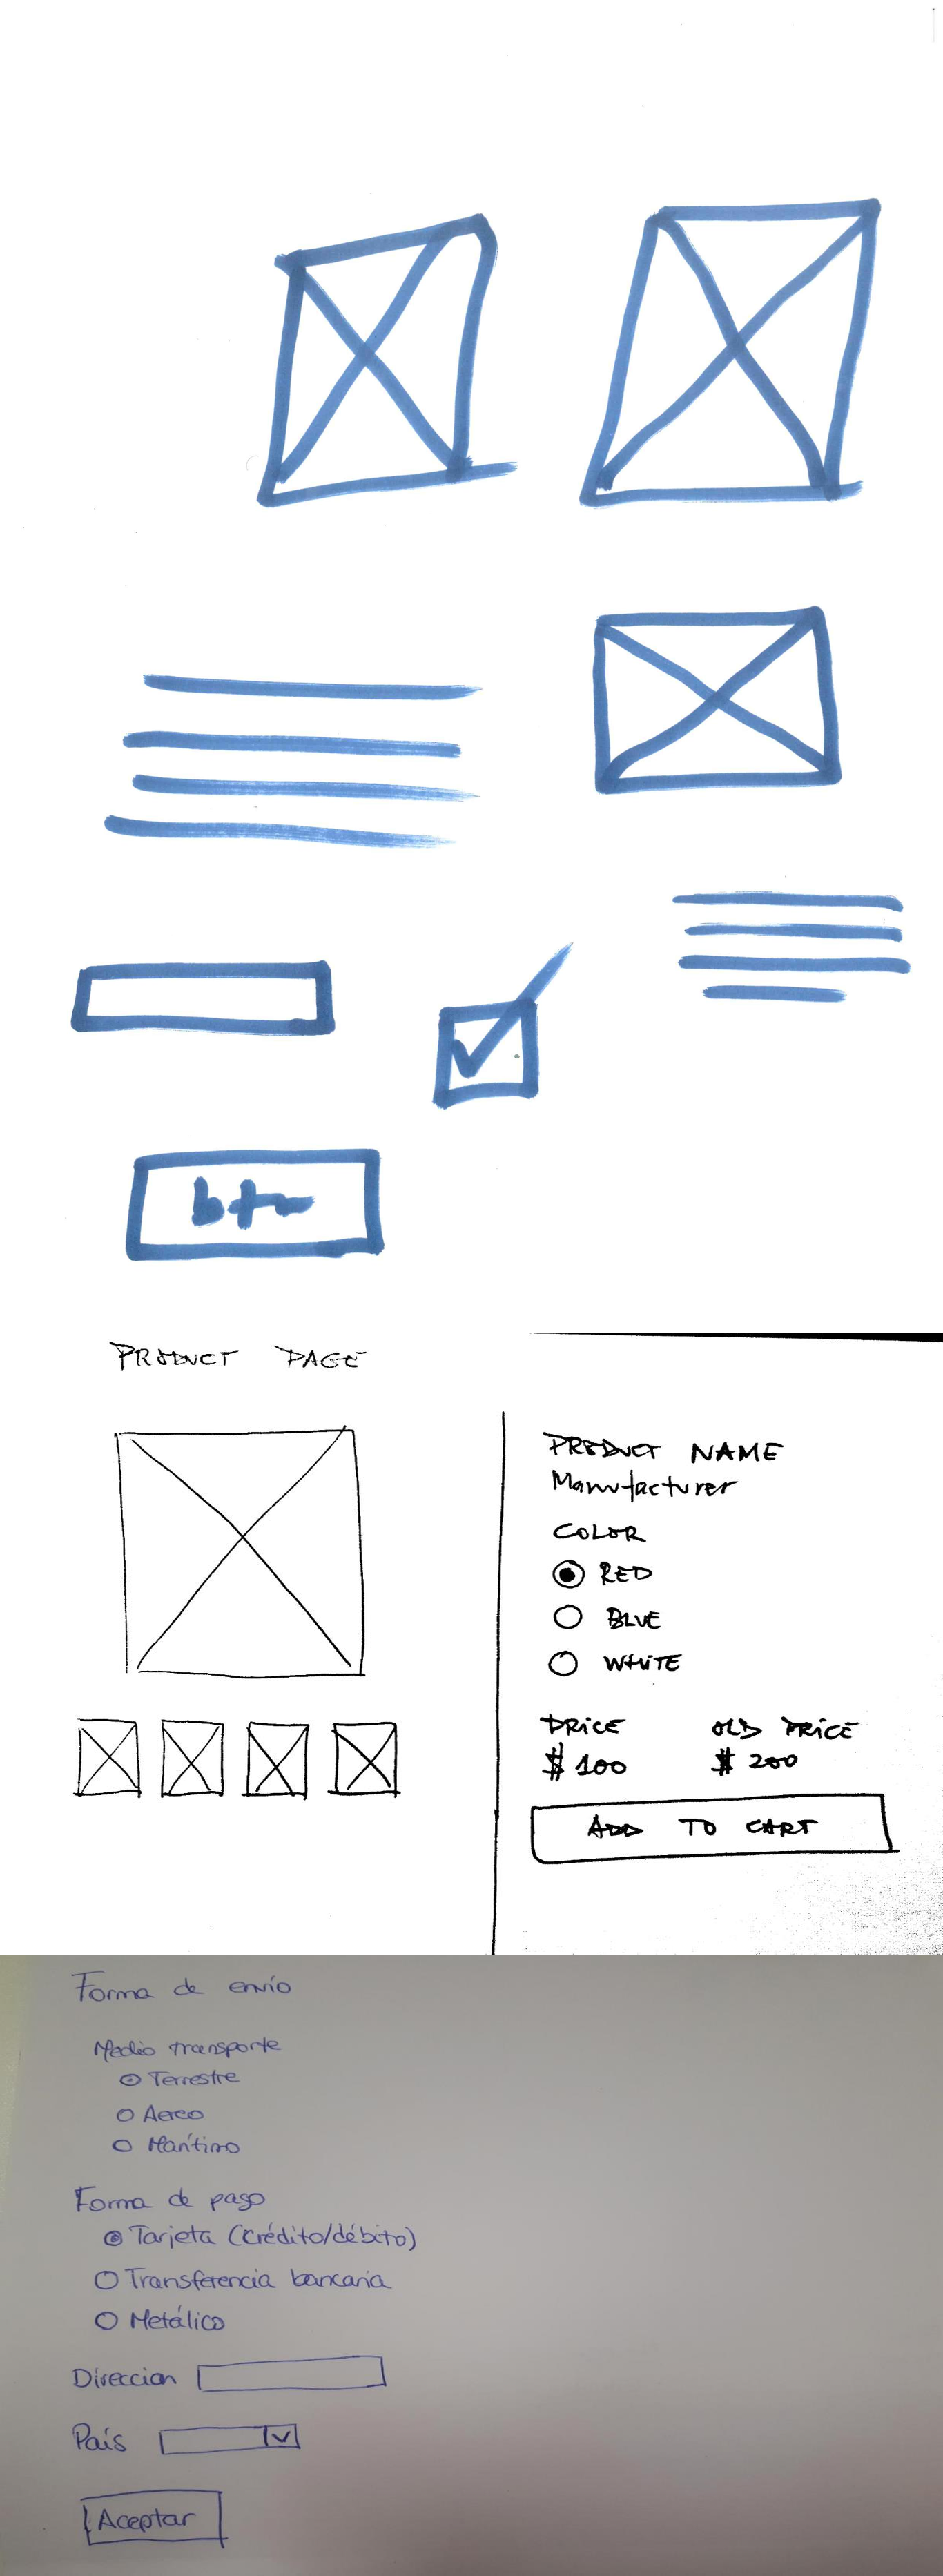 btn
PRODUCT PAGE
PRODUCT NAME
Manufacturer
COLOR
RED
BLUE
WHITE
PRICE OLD PRICE
$ 100 $ 200
ADD TO CART
Forma de envío
Medio transporte
Terrestre
Aereo
Marítimo
Forma de pago
Tarjeta (crédito/débito)
Transferencia bancaria
Metálico
Direccion
País
Aceptar